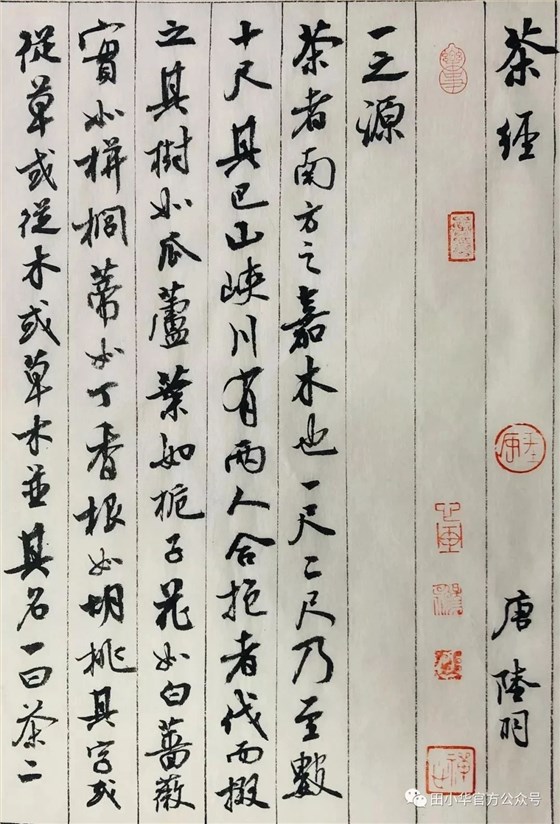 茶經
唐 陸羽
一之源
茶者南方之嘉木也一尺二尺乃至數
十尺其巴山峽川有兩人合抱者伐而掇
之其樹如瓜蘆葉如梔子花如白薔薇
實如栟櫚蒂如丁香根如胡桃其字或
從草或從木或草木並其名一曰茶二
田小华官方公众号